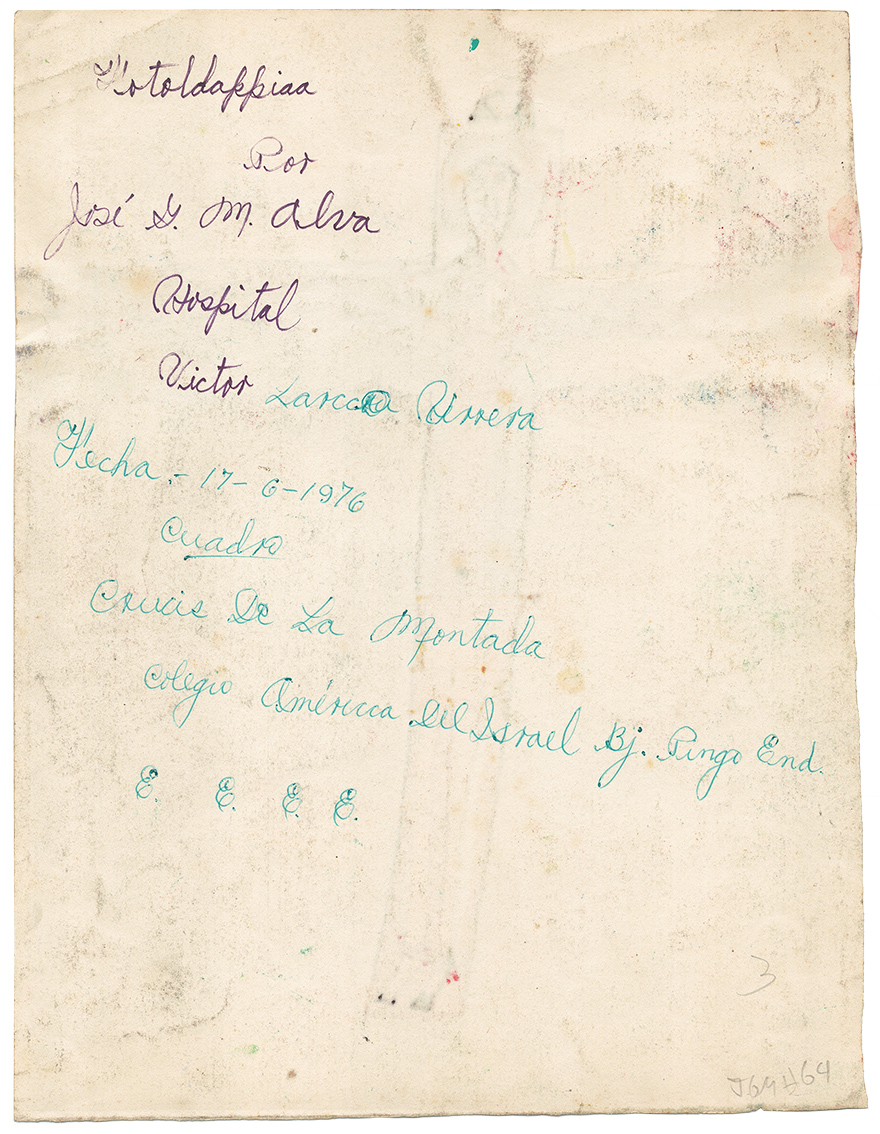 Fotoldappiaa
Por
José G. M. Alva
Hospital
Victor Larcco Urrera
Fecha.- 17-6-1976
Cuadro
Crucis De La Montada
Colegio Américca Del Israel Bj. Pingo End.
E. E. E. E.
3